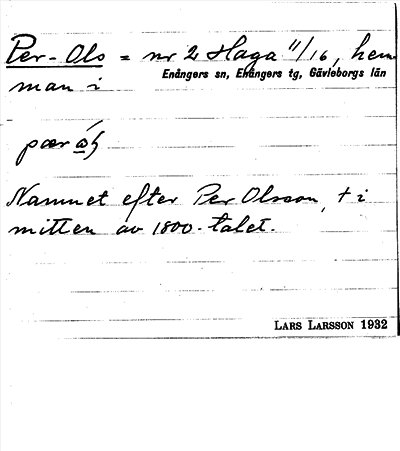 Per-Ols = nr 2 Haga 11/16, hem
Enångers sn, Enångers tg, Gävleborgs län
man i
Namnet efter Per Olsson, † i
mitten av 1800-talet.
LARS LARSSON 1932